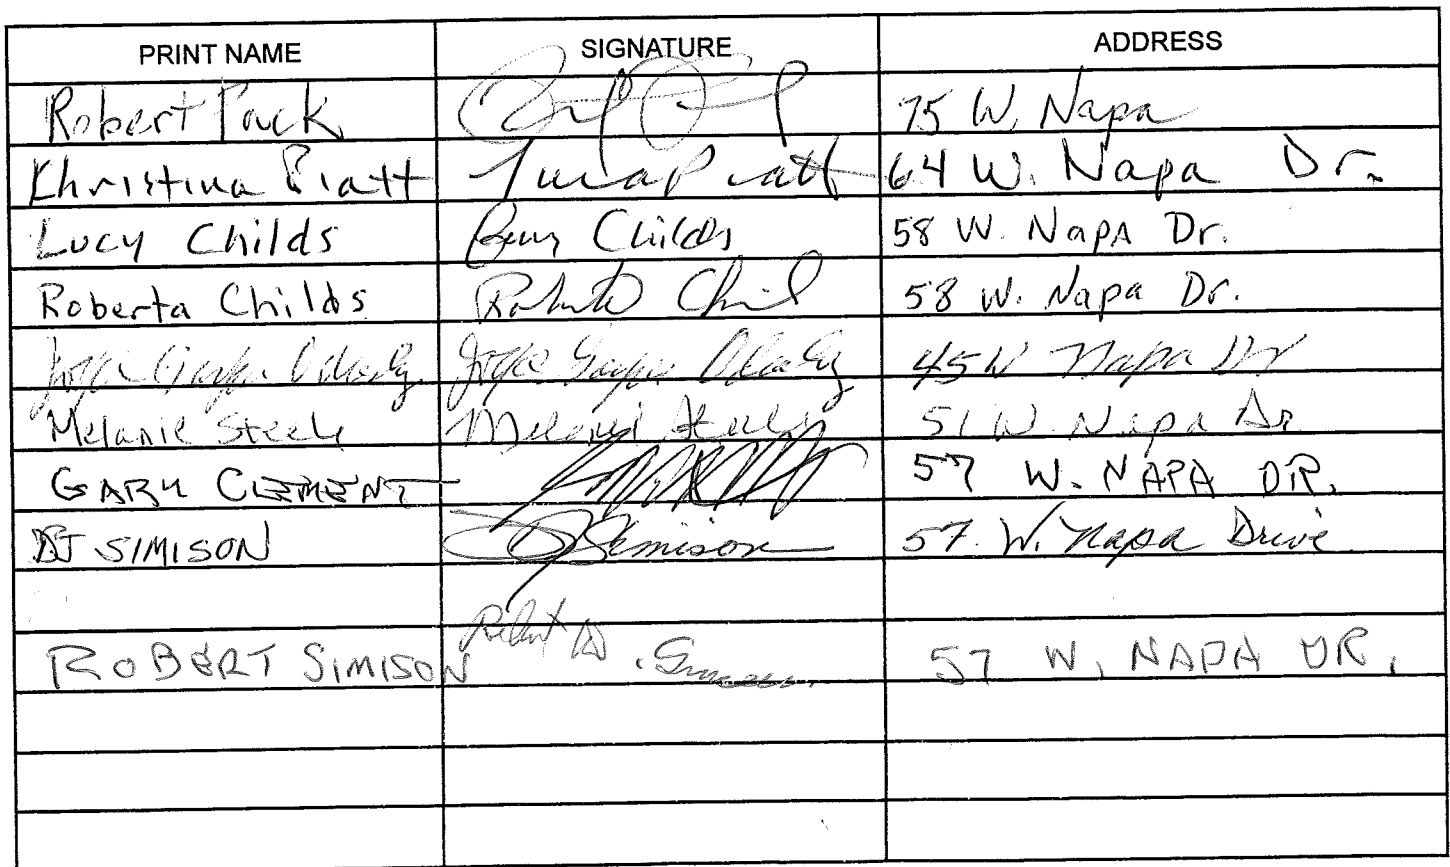 PRINT NAME SIGNATURE ADDRESS
Robert Pack 75 W. Napa
Khristina Piatt Piatt 64 W. Napa Dr.
Lucy Childs Childs 58 W. Napa Dr.
Roberta Childs Roberta 58 W. Napa Dr.
Joyce Joyce 45 W Napa Dr
Melanie Steele Melanie Steele 51 W. Napa Dr
GARY CLEMENT 57 W. NAPA DR.
DJ SIMISON DJ Simison 57. W. Napa Drive
ROBERT SIMISON Robert D. Simison 57 W. NAPA DR.